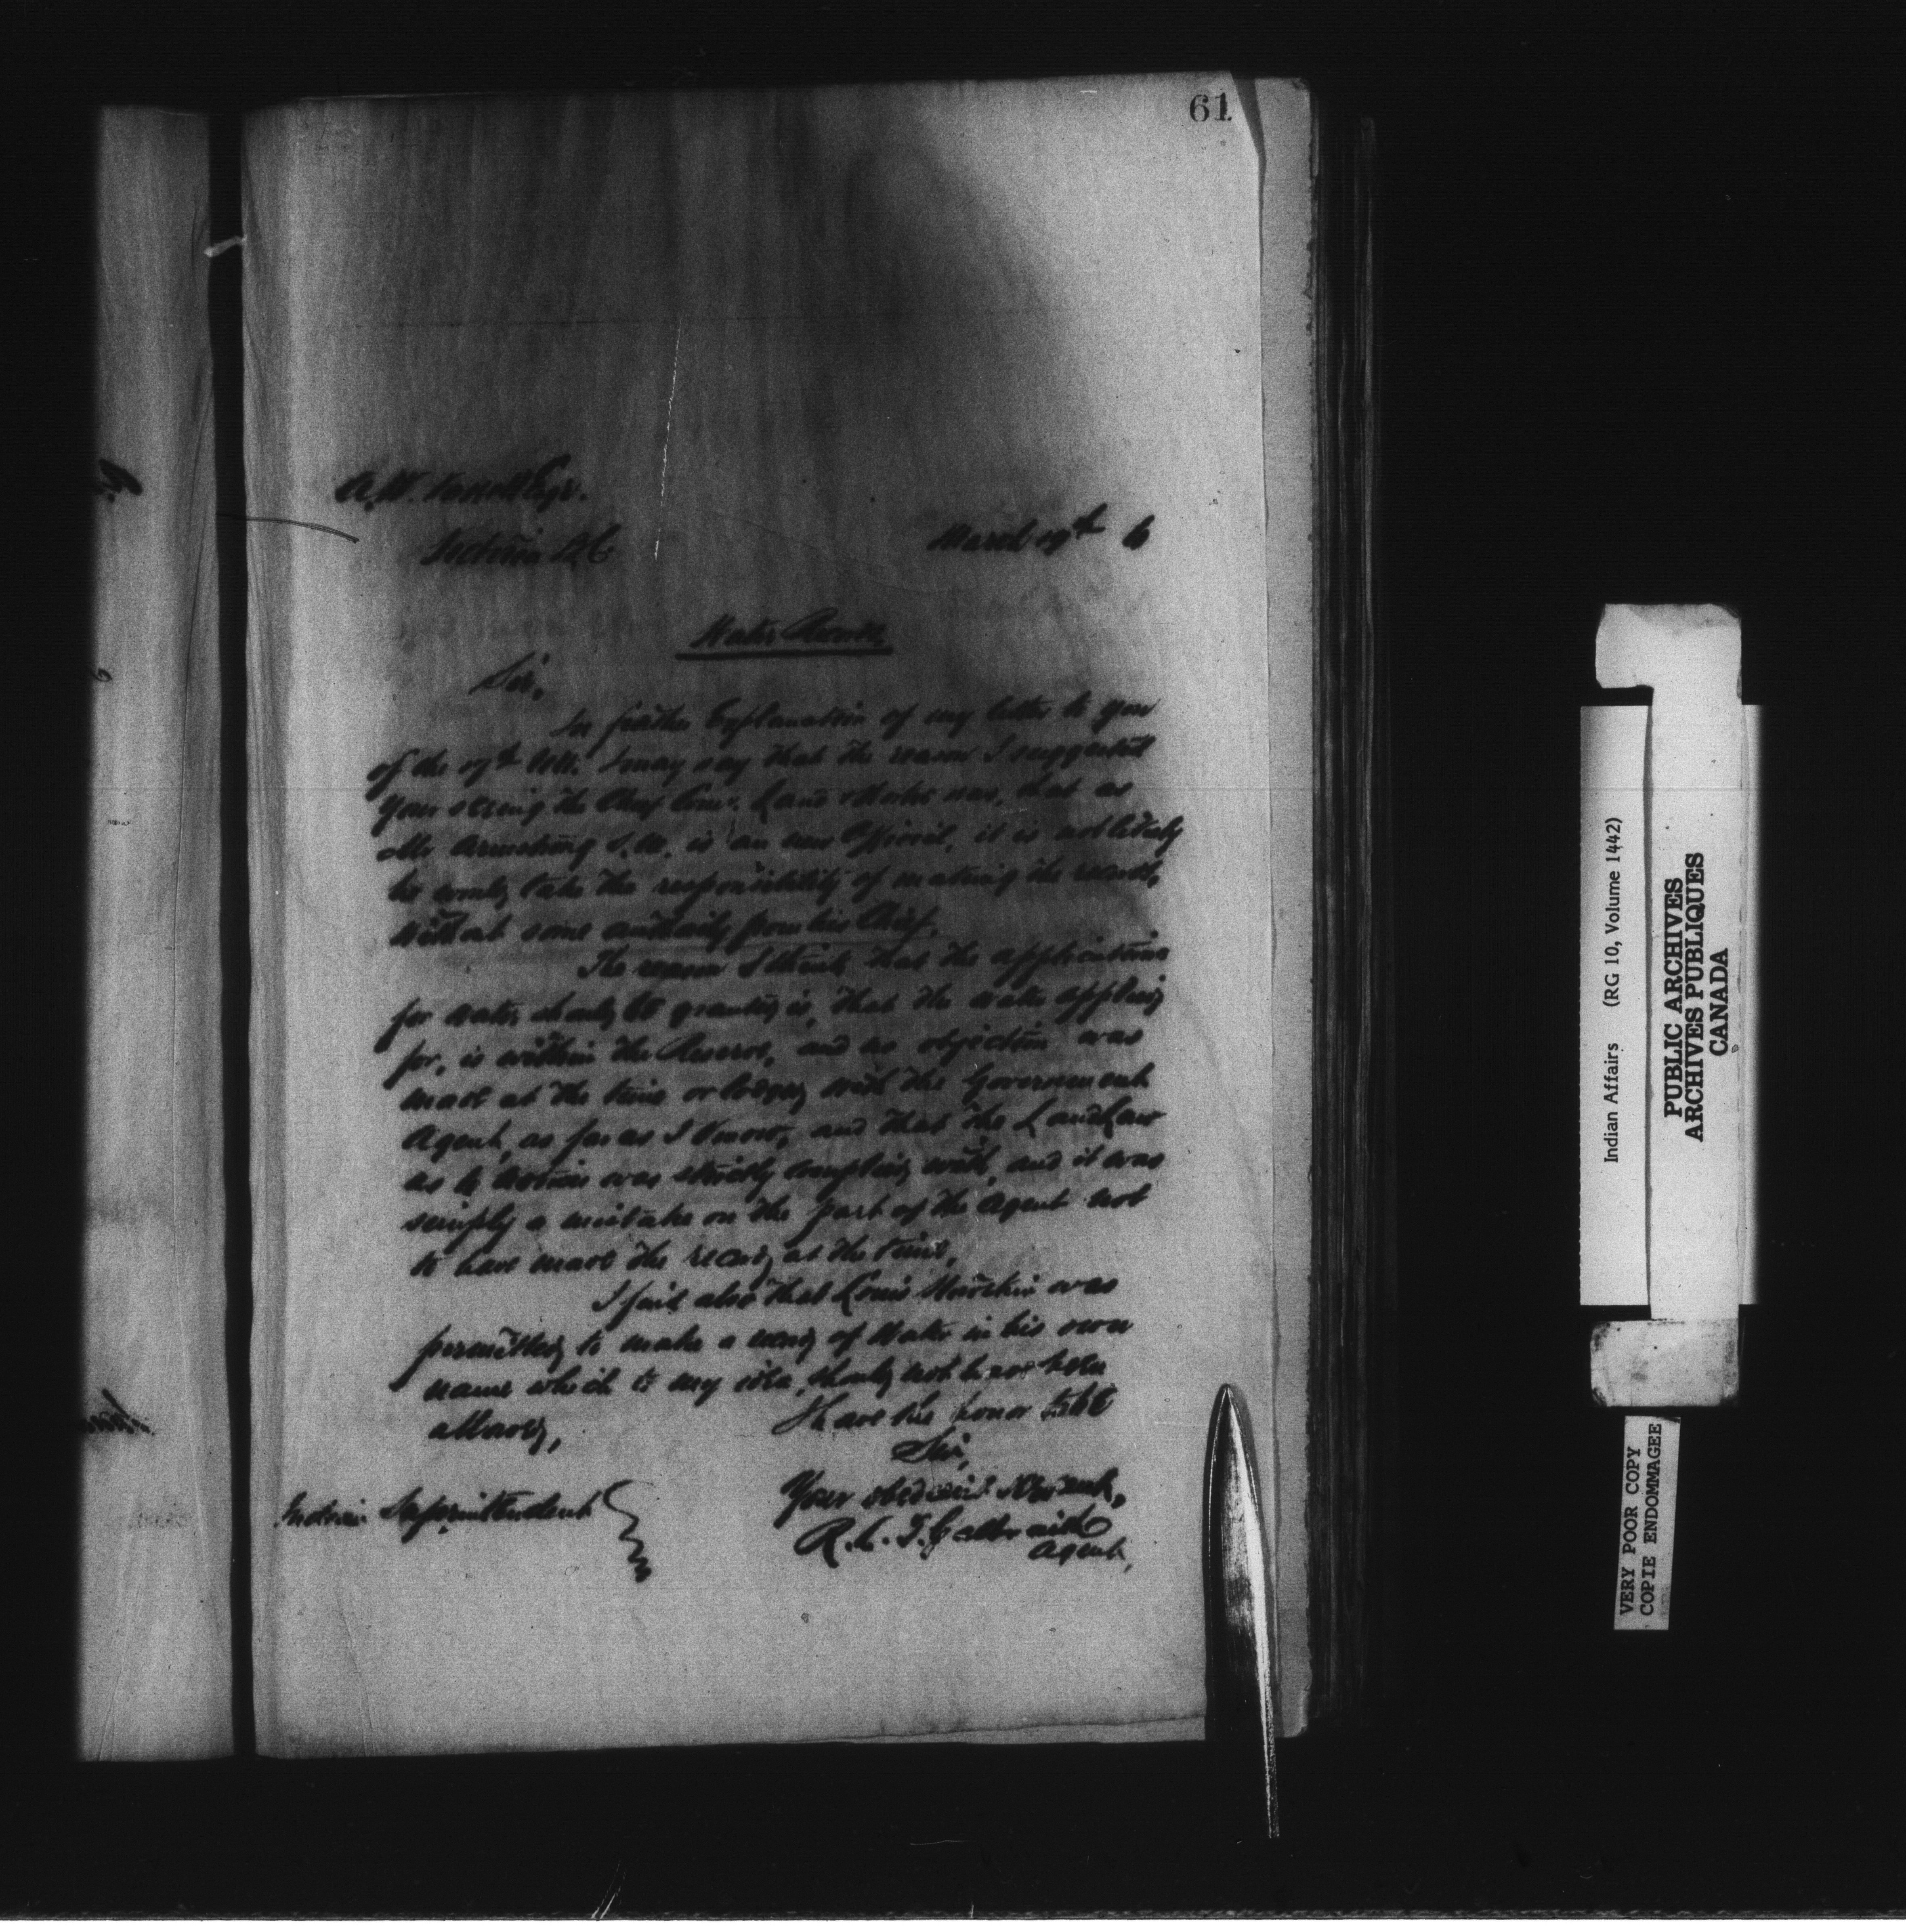 61
A. W. Vowell Esqr.
Victoria B.C.
March 19th 6
Water Records
Sir,
In further Explanation of my letter to you
of the 17th Ult. I may say that the reason I suggested
your seeing the Chief Com. Land & Works was, that as
Mr Armstrong S.M. is an new Official, it is not likely
he would take the responsibility of making the records,
without some authority from his Chief.
The reason I think that the applications
for water should be granted is, that the water applied
for, is within the Reserve, and no objection was
made at the time or lodged with the Government
Agent, as far as I know, and that the Land Law
as to notices was strictly complied with, and it was
simply a mistake on the part of the Agent not
to have made the record at the time,
I find also that Louis was
permitted to make a record of Water in his own
name which to my idea, should not have been
allowed,
I have the honor to be
Sir,
Your obedient Servant,
R. L. T. Galbraith
Agent,
Indian Superintendent
Indian Affairs (RG 10, Volume 1442)
PUBLIC ARCHIVES
ARCHIVES PUBLIQUES
CANADA
VERY POOR COPY
COPIE ENDOMMAGEE